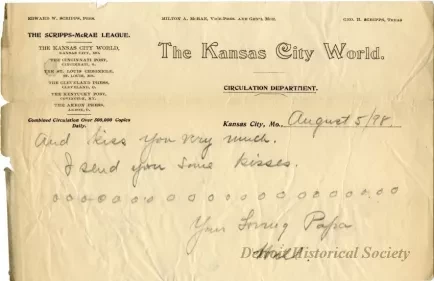 EDWARD W. SCRIPPS, PRES. MILTON A. McRAE, VICE-PRES. AND GEN'L MGR. GEO. H. SCRIPPS, TREAS.
THE SCRIPPS-McRAE LEAGUE.
THE KANSAS CITY WORLD,
KANSAS CITY, MO.
THE CINCINNATI POST,
CINCINNATI, O.
THE ST. LOUIS CHRONICLE,
ST. LOUIS, MO.
THE CLEVELAND PRESS,
CLEVELAND, O.
THE KENTUCKY POST,
COVINGTON, KY.
THE AKRON PRESS,
AKRON, O.
Combined Circulation Over 300,000 Copies
Daily.
The Kansas City World.
CIRCULATION DEPARTMENT.
Kansas City, Mo., August 5/98
And kiss you very much.
I send you some kisses.
o o o o o o o o o o o o o o o o o o o o o
Your loving Papa
Detroit Historical Society